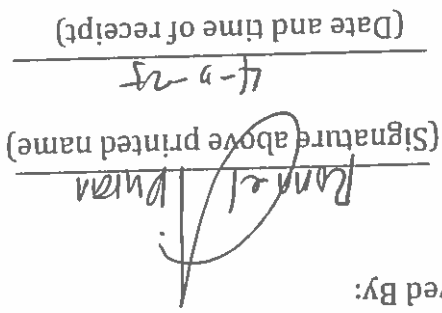 ved By:
Rommel Duran
(Signature above printed name)
(Date and time of receipt)